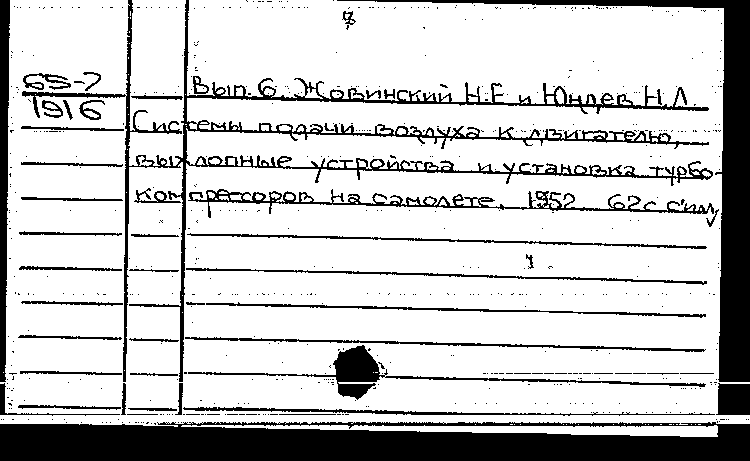 7
65-7
1916
Вып. 6. Жовинский Н.Е и Юндев Н.Л
Системы подачи воздуха к двигателю,
выхлопные устройства и установка турбо-
компрессоров на самолете. 1952 62с с илл
1